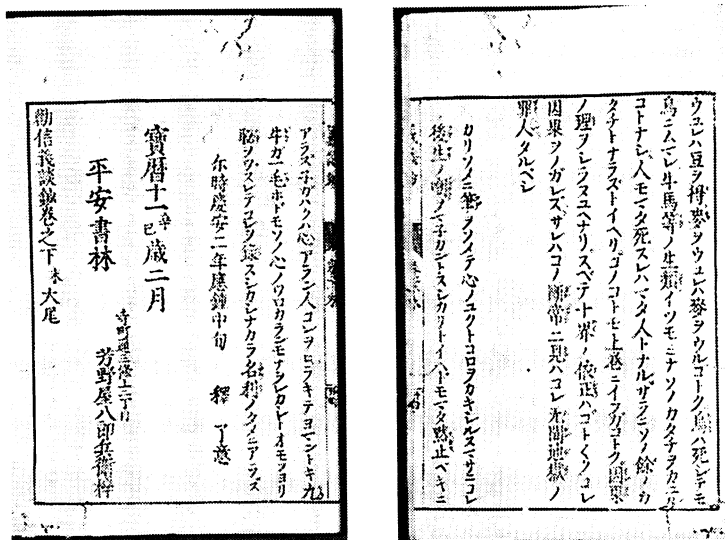 ウユレハ豆ヲ得麥ヲウユレハ麥ヲウルコトク鳥ハ死シテモ
鳥ニムマレ牛馬等ノ生類イツモミナソノカタチヲカニ
コトナシ人モマタ死スレハマタ人トナルサラニソノ餘ノカ
タチトナラストイヘリコノコトモ上巻ニイフカコトク因果
ノ理ヲシラヌユヘナリスベテ十界ノ依正ハコトくクコレ
因果ヲノガレズサレハコノ斷常二見ハコレ無間地獄ノ
罪人タルベシ
カリソメニ筆ヲソメテ心ノユクトコロヲカキシルスマサニコレ
後生ノ嘲ノマネカントスシカリトイヘトモマタ黙止ベキニ
アラズネガハクハ心アラン人コレヲヒラキテヨマントキ九
牛ガ一毛ホトモソノ心ノワロカラシモナシカレトオモフヨリ
恥ヲワスレテコレヲ録スシカシナカラ名利ノタメニアラズ
尓時慶安二年應鐘中旬 釋 了意
寶曆十一辛巳歳二月
平安書林
寺町通三條上ニ丁目
芳野屋八郎兵衞梓
勸信義談鈔卷之下末大尾